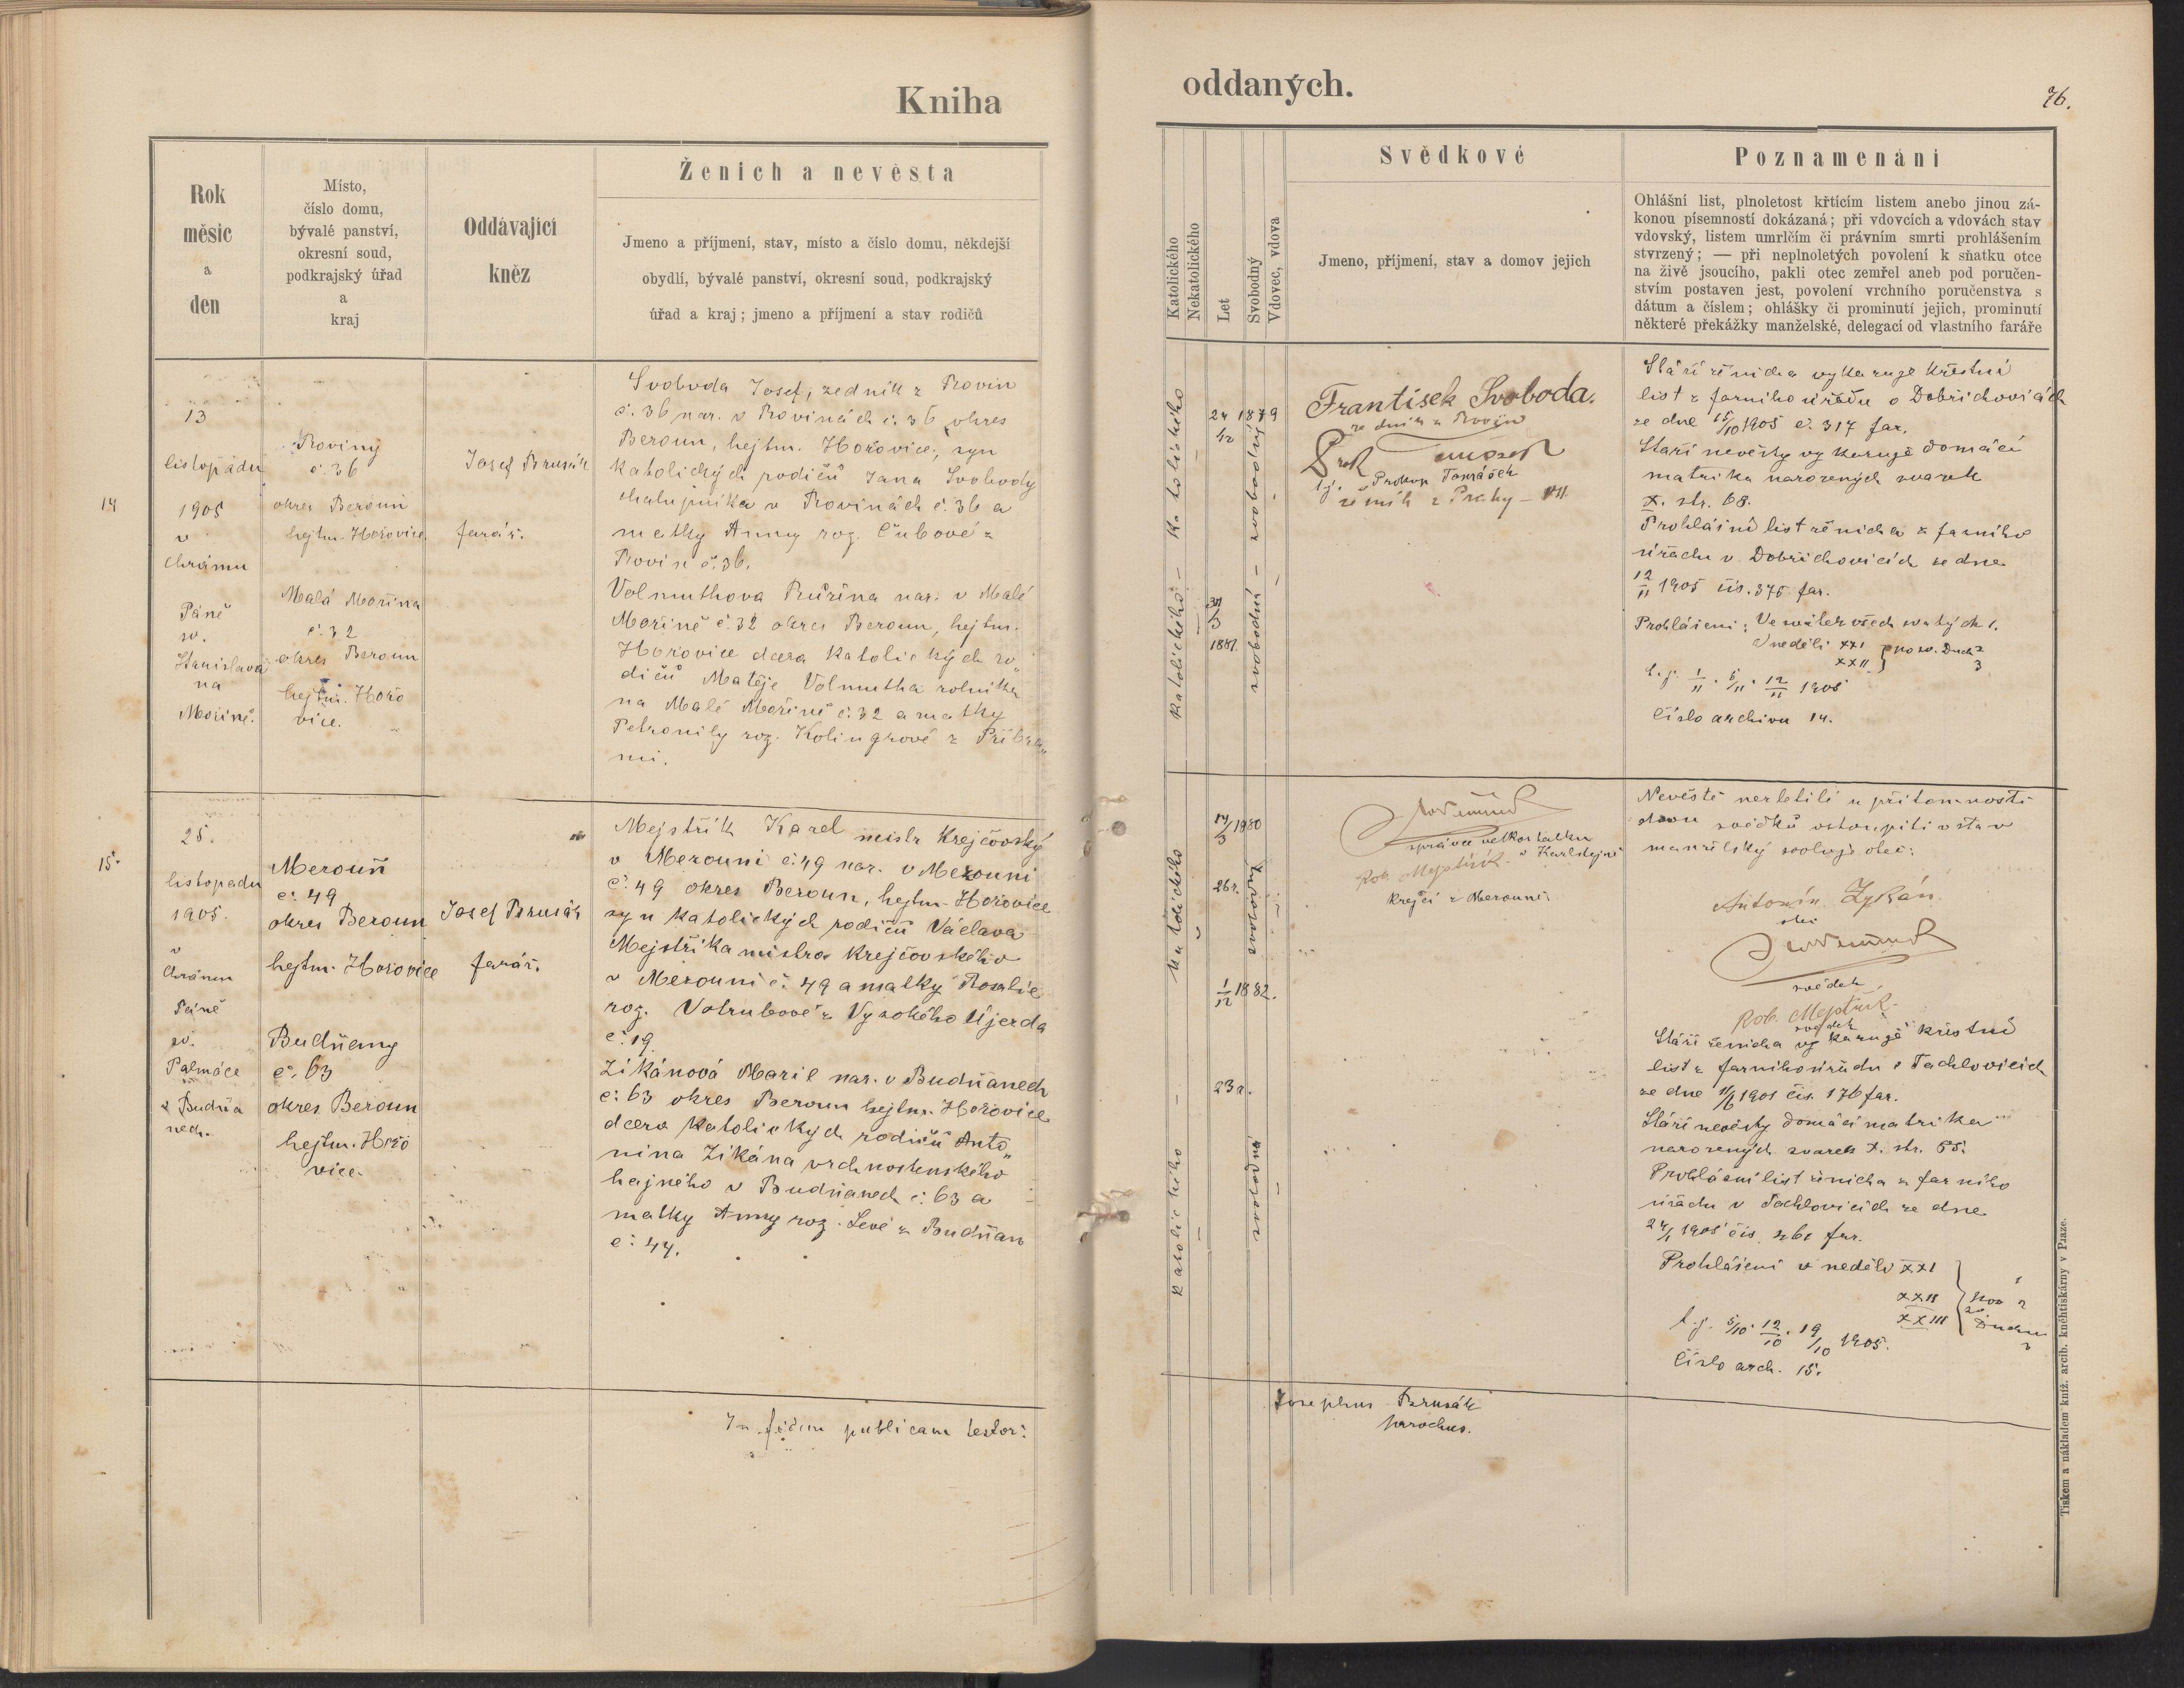 Kniha
oddaných.
76.
Rok
měsíc
a
den
Místo,
číslo domu,
bývalé panství,
okresní soud,
podkrajský úřad
a
kraj
Oddávající
kněz
Ženich a nevěsta
Jmeno a příjmení, stav, místo a číslo domu, někdejší
obydlí, bývalé panství, okresní soud, podkrajský
úřad a kraj; jmeno a příjmení a stav rodičů
Katolického
Nekatolického
Let
Svobodný
Vdovec, vdova
Svědkové
Jmeno, příjmení, stav a domov jejich
Poznamenání
Ohlášní list, plnoletost křtícím listem anebo jinou zá-
konou písemností dokázaná; při vdovcích a vdovách stav
vdovský, listem umrlčím či právním smrti prohlášením
stvrzený; — při neplnoletých povolení k sňatku otce
na živě jsoucího, pakli otec zemřel aneb pod poručen-
stvím postaven jest, povolení vrchního poručenstva s
dátum a číslem; ohlášky či prominutí jejich, prominutí
některé překážky manželské, delegací od vlastního faráře
14
13
listopadu
1905
v
chrámu
Páně
sv.
Stanislava
na
Mořině.
Roviny
č. 36
okres Beroun
hejtm. Hořovice
Malá Mořina
č. 32
okres Beroun
hejtm. Hořo
vice.
Josef Brusák
farář.
Svoboda Josef, zedník z Rovin
č. 36 nar. v Rovinách č. 36 okres
Beroun, hejtm. Hořovice, syn
katolických rodičů Jana Svobody
chalupníka v Rovinách č. 36 a
matky Anny roz. Čubové z
Rovin č. 36.
Volmuthova Růžena nar. v Malé
Mořině č. 32 okres Beroun, hejtm.
Hořovice dcera katolických ro„
dičů Matěje Volmutha rolníka
na Malé Mořině č. 32 a matky
Petronily roz. Kolingrové z Příbra„
mi.
katolického – katolického
24/12 1879
31/3 1881
svobodná – svobodný
František Svoboda.
zedník z Rovin
t.j. Prokop Tomášek
řezník z Prahy – VII
Stáří ženicha vykazuje křestní
list z farního úřadu v Dobřichovicích
ze dne 15/10 1905 č. 317 far.
Stáří nevěsty vykazuje domácí
matrika narozených svazek
X. str. 68.
Prohlášní list ženicha z farního
úřadu v Dobřichovicích ze dne
12/11 1905 čís. 375 far.
Prohlášení: Ve svátek všech svatých 1.
V neděli XXI } po sv. Duch 2
XXII 3
t.j. 1/11. 5/11. 12/11 1905
Číslo archivu 14.
15.
25.
listopadu
1905.
v
chrámu
Páně
sv.
Palmáce
v Budňa
nech.
Mezouň
č. 49
okres Beroun
hejtm. Hořovice
Budňany
č. 63
okres Beroun
hejtm. Hořo
vice.
Josef Brusák
farář.
Mejstřík Karel mistr krejčovský
v Mezouni č. 49 nar. v Mezouni
č. 49 okres Beroun, hejtm. Hořovice
syn katolických rodičů Václava
Mejstříka mistra krejčovského
v Mezouni č. 49 a matky Rosalie
roz. Votrubové z Vysokého Újezda
č. 19.
Zikánová Marie nar. v Budňanech
č. 63 okres Beroun hejtm. Hořovice
dcera katolických rodičů Anto„
nína Zikána vrchnostenského
hajného v Budňanech č. 63 a
matky Anny roz. Levé z Budňan
č. 44.
katolického – katolického
14/3 1880
26 r.
1/12 1882.
23 r.
svobodná svobodný
správce velkostatku
v Karlštejně
Rob. Mejstřík
krejčí z Mezouně
Nevěstě nezletilé u přítomnosti
dvou svědků vstoupiti v stav
manželský svoluje otec:
Antonín Zykán
otec
svědek
Rob. Mejstřík.
svědek
Stáří ženicha vykazuje křestní
list z farního úřadu v Tachlovicích
ze dne 11/6 1901 čís. 176 far.
Stáří nevěsty domácí matrika
narozených svazek X. str. 85.
Prohlášní list ženicha z farního
úřadu v Tachlovicích ze dne
čís. 261 far.
Prohlášení v neděli XXI 1
XXII } po 2
XXIII sv. Duchu 3
t.j. 5/10. 12/10. 19/10 1905.
Číslo arch. 15.
In fidem publicam testor:
Josephus Brusák
parochus.
Tiskem a nákladem kníž. arcib. kněhtiskárny v Praze.